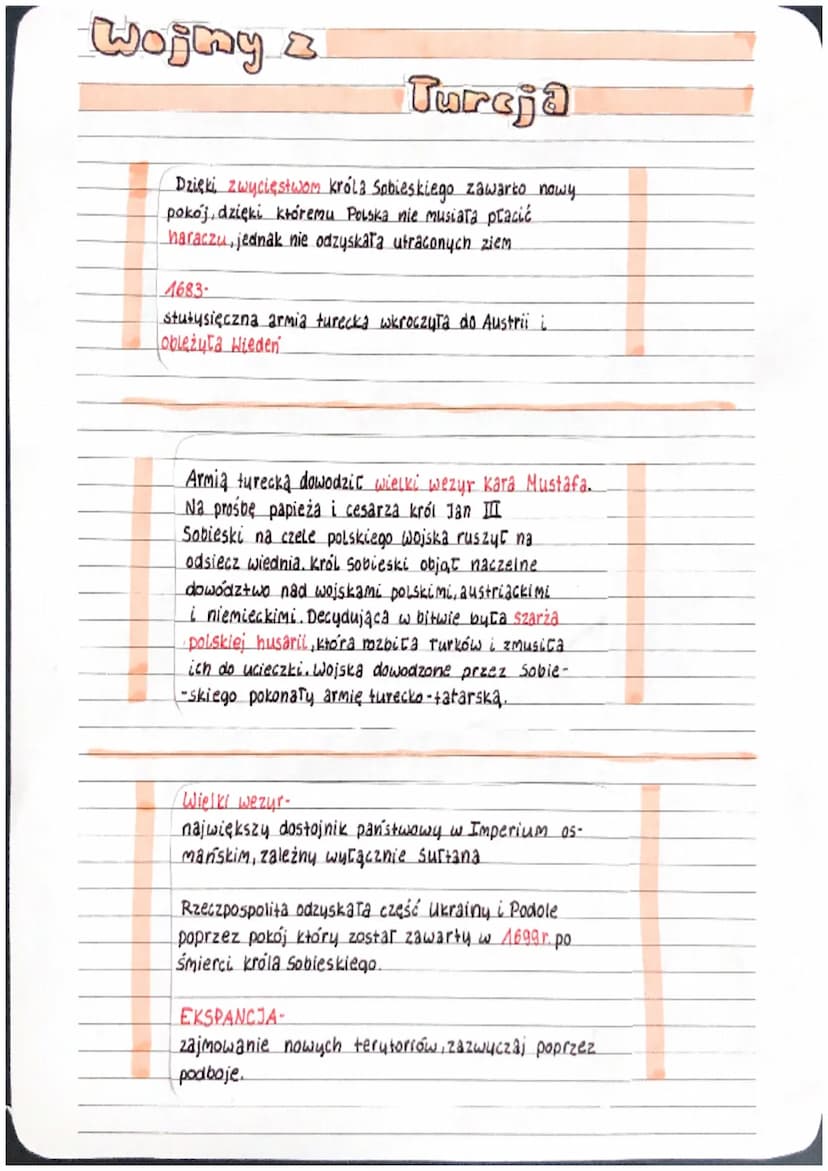 Wojny z
Turcja
Dzięki zwycięstwom króla Sobieskiego zawarto nowy
pokój, dzięki któremu Polska nie musiała płacić
haraczu, jednak nie odzyskała utraconych ziem
1683-
stutysięczna armia turecka wkroczyła do Austrii i
oblężyła Wiedeń
Armią turecką dowodził wielki wezyr Kara Mustafa.
Na prośbę papieża i cesarza król Jan III
Sobieski na czele polskiego wojska ruszył na
odsiecz wiednia. Król Sobieski objął naczelne
dowództwo nad wojskami polskimi, austriackimi
i niemieckimi. Decydująca w bitwie była szarża
polskiej husarii, która rozbiła Turków i zmusiła
ich do ucieczki. Wojska dowodzone przez Sobie-
-skiego pokonały armię turecko-tatarską.
Wielki wezyr-
największy dostojnik państwowy w Imperium os-
mańskim, zależny wyłącznie Sułtana
Rzeczpospolita odzyskała część Ukrainy i Podole
poprzez pokój który został zawarty w 1699r. po
śmierci króla Sobieskiego.
EKSPANCJA-
zajmowanie nowych terytoriów, zazwyczaj poprzez
podboje.